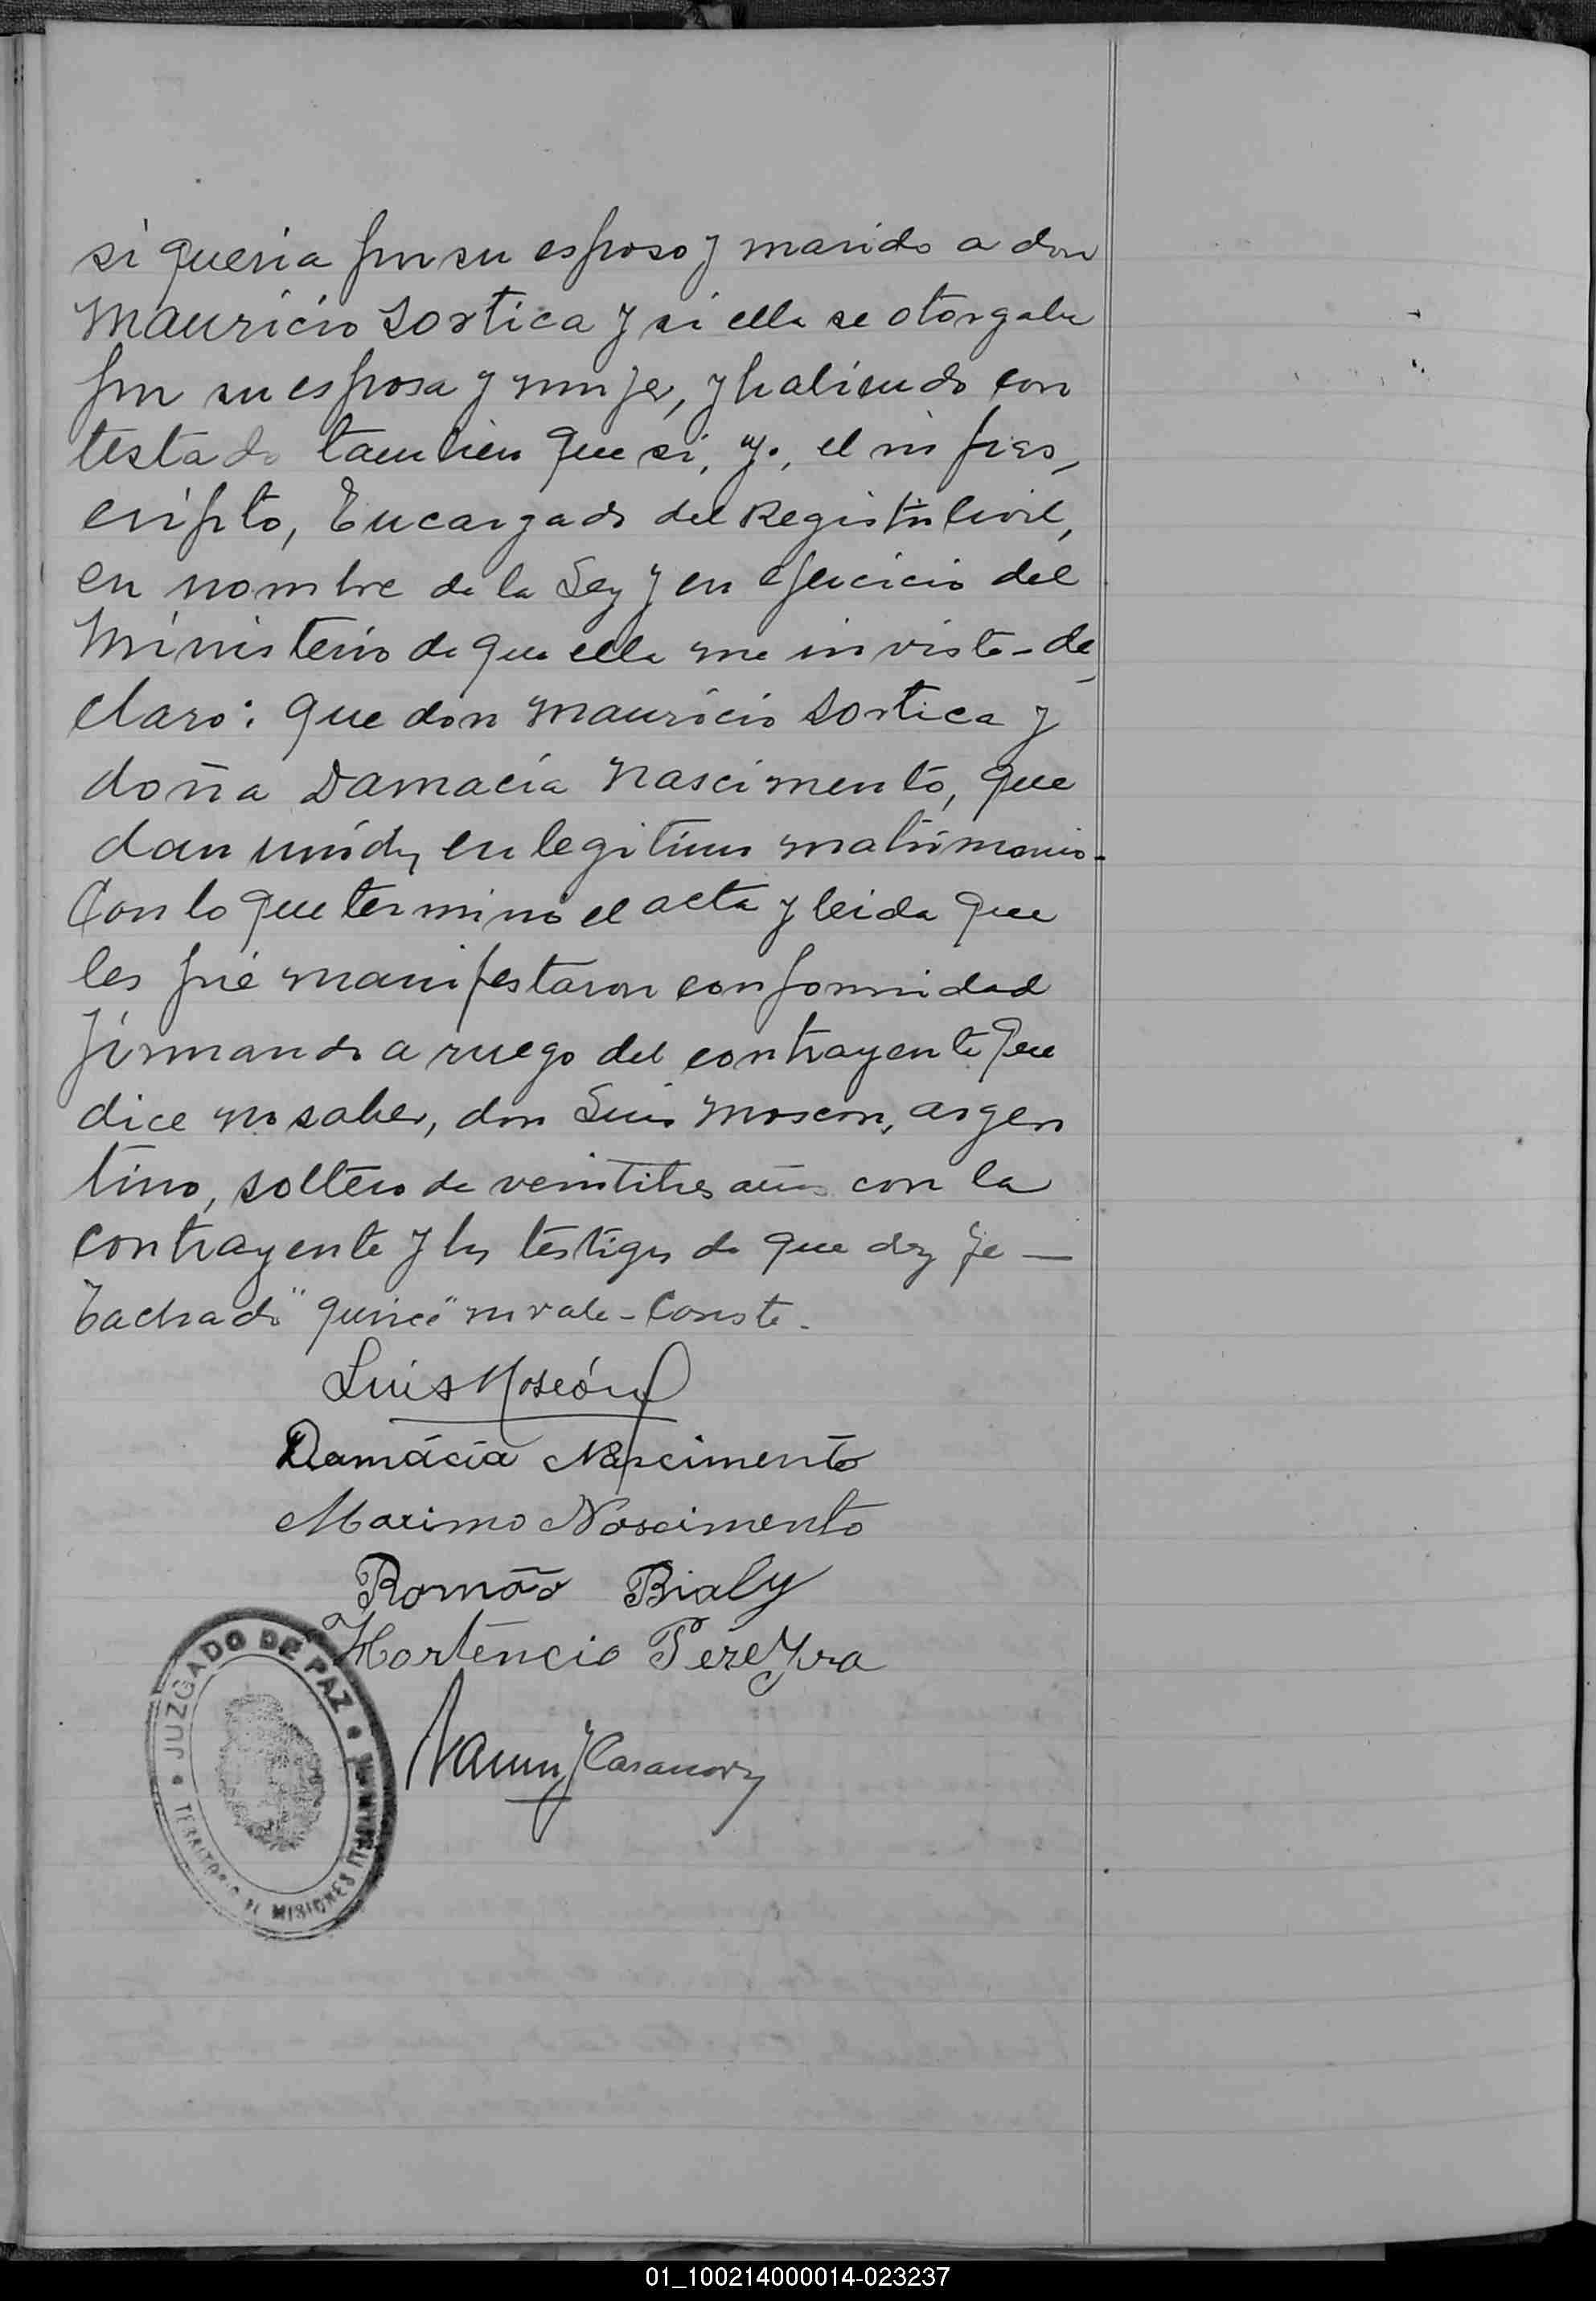 si queria por su esposo y marido a don
Mauricio Sortica y si ella se otorgaba
por su esposa y mujer, y habiendo con
testado tambien que si, yo, el infras,
cripto, Encargado del Registro Civil,
en nombre de la Ley y en ejercicio del
Ministerio de que ella me inviste - de
claro: que don Mauricio Sortica y
doña Damacia Nascimento, que
dan unidos en legitimo matrimonio -
Con lo que terminó el acta y leida que
les fué manifestaron conformidad
firmando a ruego del contrayente que
dice no saber, don Luis Moscon, argen
tino, soltero de veintitres años con la
contrayente y los testigos de que doy fe —
Tachado "quince" no vale - Conste -
Luis Moscón
Damácia Nascimento
Maximo Nascimento
Romão Bialy
Hortencio Péreyra
Casanova
JUZGADO DE PAZ
TERRITORIO DE MISIONES
01_100214000014-023237